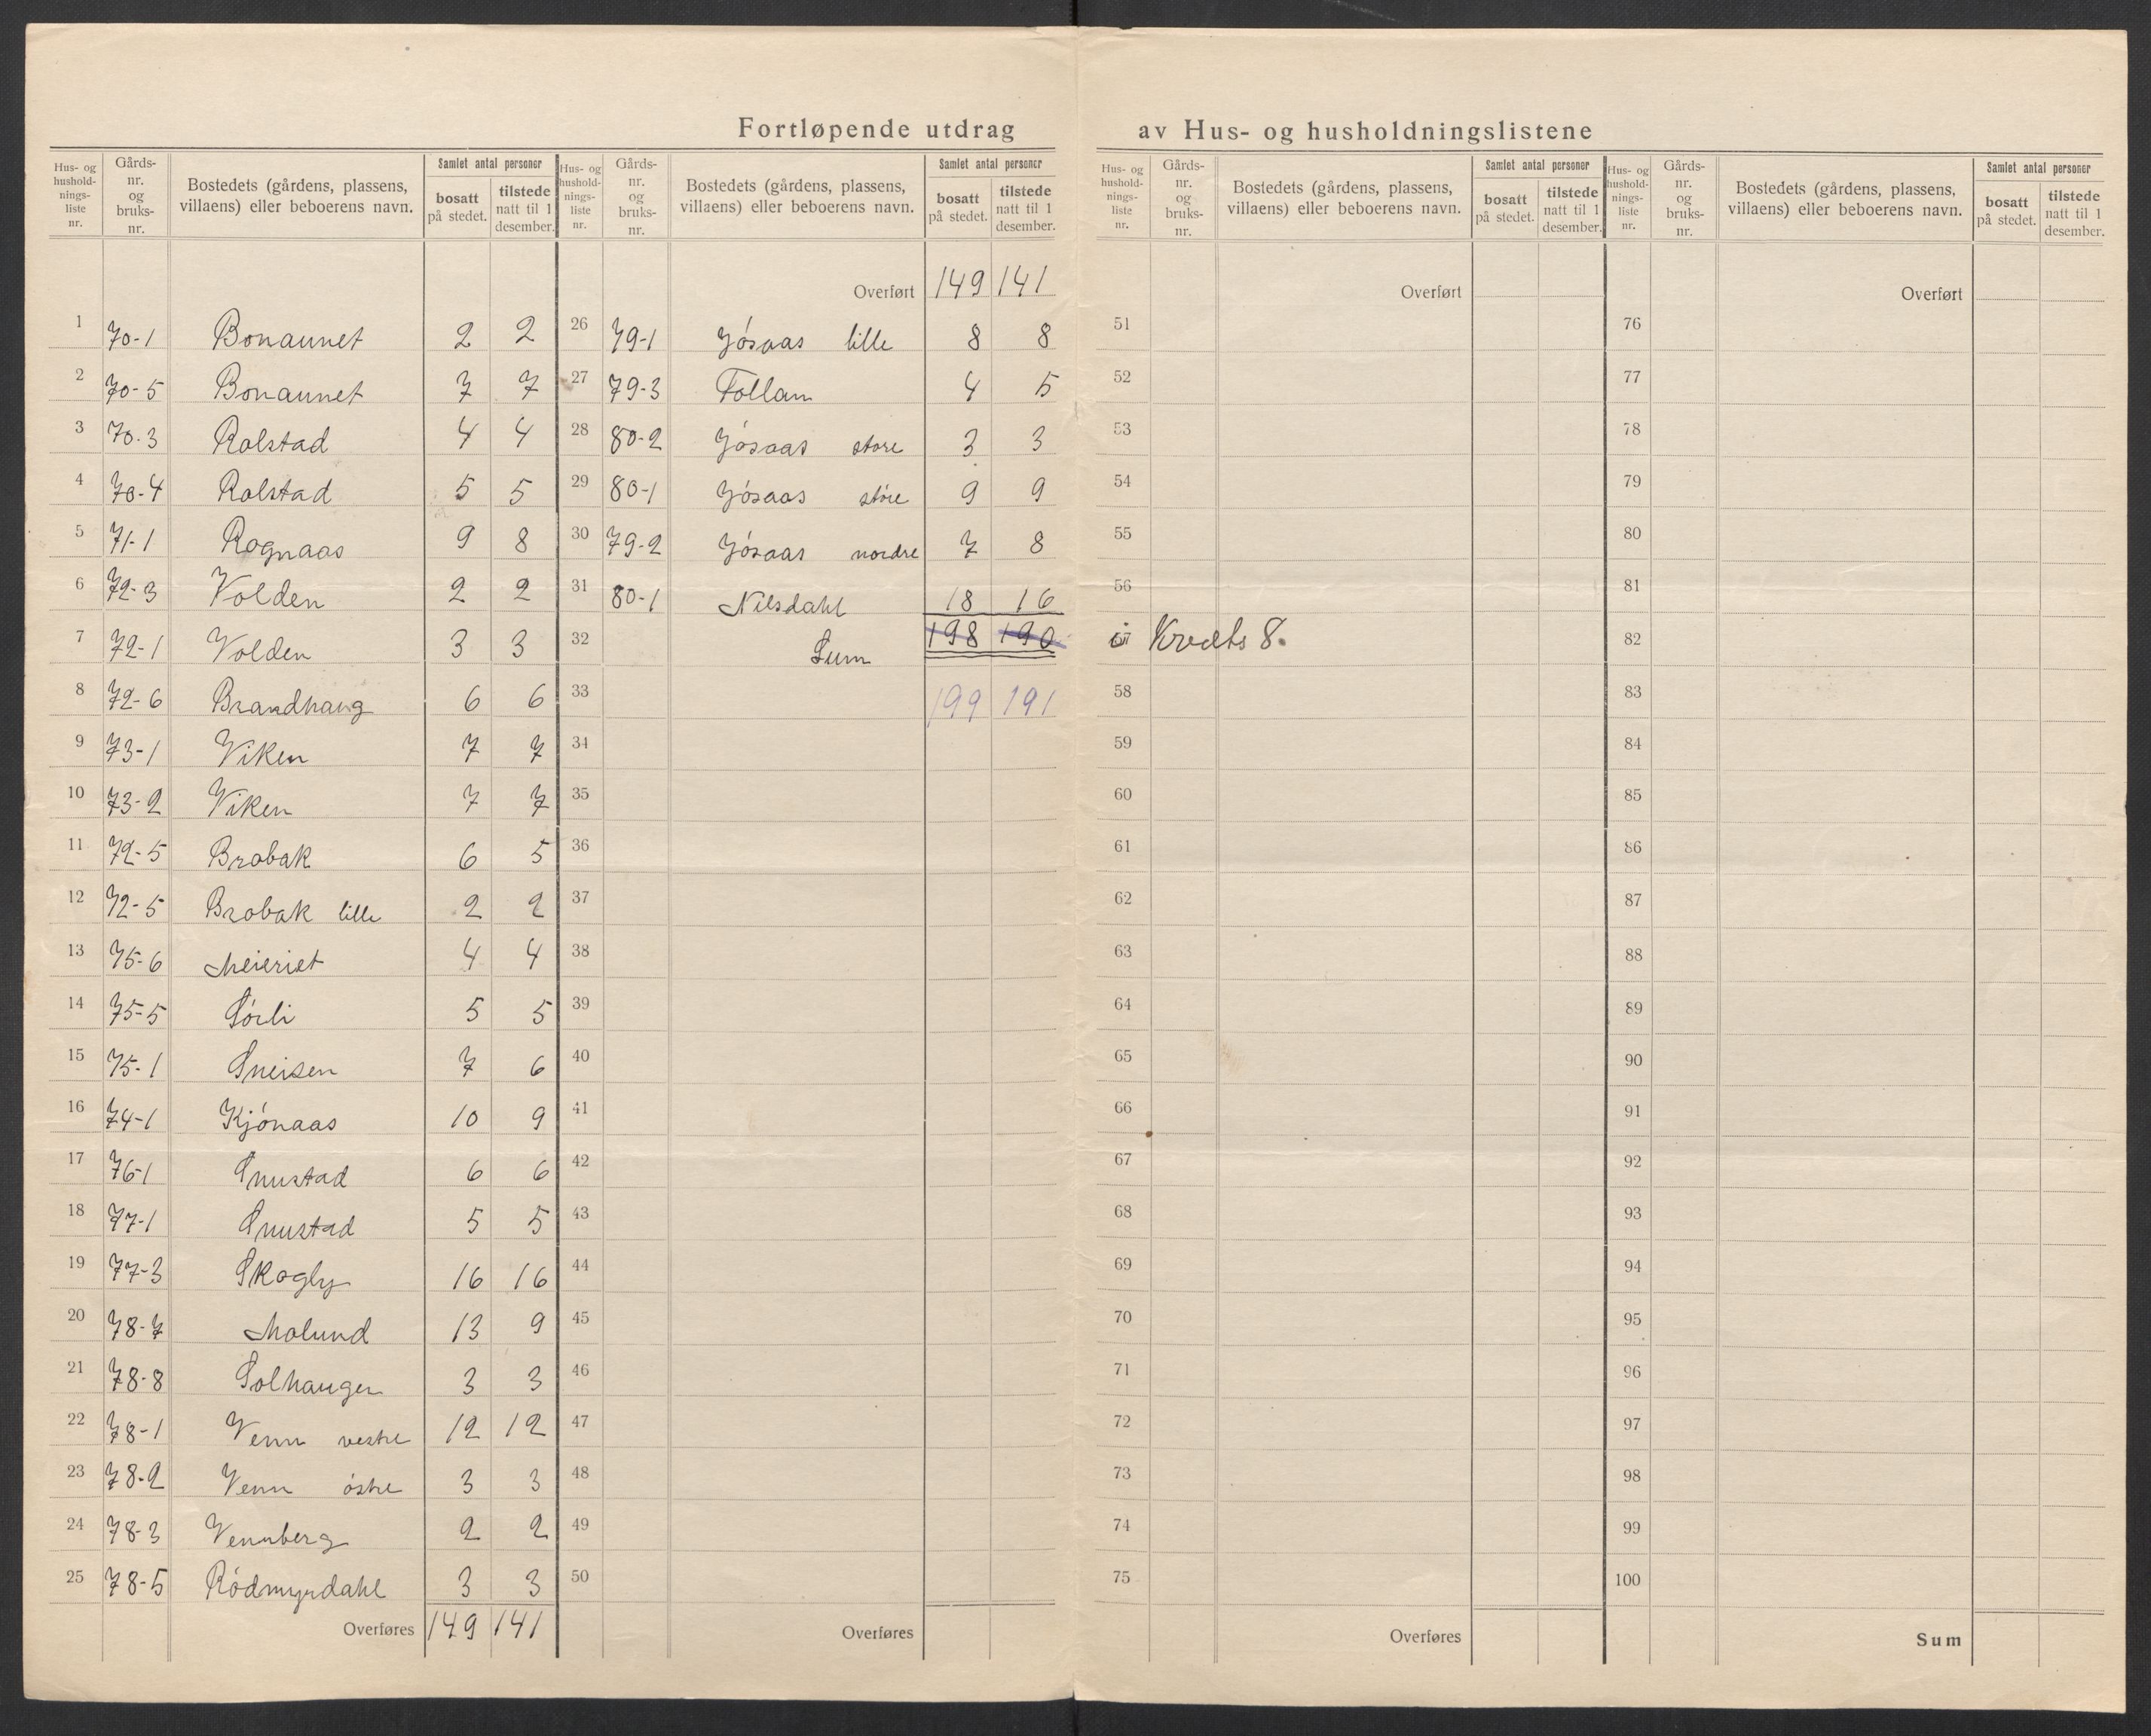 Fortløpende utdrag av Hus- og husholdningslistene
Hus- og husholdnings-liste nr. | Gårds-nr. og bruks-nr. | Bostedets (gårdens, plassens, villaens) eller beboerens navn. | Samlet antal personer | bosatt på stedet. | tilstede natt til 1 desember.
Hus- og husholdnings-liste nr. | Gårds-nr. og bruks-nr. | Bostedets (gårdens, plassens, villaens) eller beboerens navn. | Samlet antal personer | bosatt på stedet. | tilstede natt til 1 desember.
Hus- og husholdnings-liste nr. | Gårds-nr. og bruks-nr. | Bostedets (gårdens, plassens, villaens) eller beboerens navn. | Samlet antal personer | bosatt på stedet. | tilstede natt til 1 desember.
Hus- og husholdnings-liste nr. | Gårds-nr. og bruks-nr. | Bostedets (gårdens, plassens, villaens) eller beboerens navn. | Samlet antal personer | bosatt på stedet. | tilstede natt til 1 desember.
1 70-1 Bonaunet 2 2
2 70-5 Bonaunet 7 7
3 70-3 Rolstad 4 4
4 70-4 Rolstad 5 5
5 71-1 Rognaas 9 8
6 72-3 Volden 2 2
7 72-1 Volden 3 3
8 72-6 Brandhaug 6 6
9 73-1 Viken 7 7
10 73-2 Viken 7 7
11 72-5 Brobak 6 5
12 72-5 Brobak lille 2 2
13 75-6 Meieriet 4 4
14 75-5 Sórli 5 5
15 75-1 Sneisen 7 6
16 74-1 Kjónaas 10 9
17 76-1 Snustad 6 6
18 77-1 Snustad 5 5
19 77-3 Skogly 16 16
20 78-7 Molund 13 9
21 78-8 Solhaugen 3 3
22 78-1 Venn vestre 12 12
23 78-2 Venn óstre 3 3
24 78-3 Vennberg 2 2
25 78-5 Ródmyrdahl 3 3
Overføres 149 141
Overført 149 141
26 79-1 Jósaas lille 8 8
27 79-3 Follam 4 5
28 80-2 Jósaas store 3 3
29 80-1 Jósaas store 9 9
30 79-2 Jósaas nordre 7 8
31 80-1 Nilsdahl 18 16
32 Sum 198 190
33 199 191
34
35
36
37
38
39
40
41
42
43
44
45
46
47
48
49
50
Overføres
Overført
51
52
53
54
55
56
i Krets 8.
58
59
60
61
62
63
64
65
66
67
68
69
70
71
72
73
74
75
Overføres
Overført
76
77
78
79
80
81
82
83
84
85
86
87
88
89
90
91
92
93
94
95
96
97
98
99
100
Sum